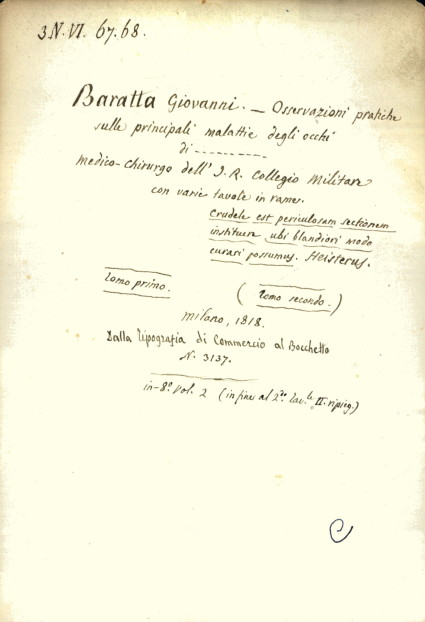 3.N.VI. 67.68.
Baratta Giovanni. — Osservazioni pratiche
sulle principali malattie degli occhi
di ----------
medico-chirurgo dell' I. R. Collegio Militare
con varie tavole in rame.
Crudele est periculosam sectionem
instituere ubi blandiori modo
curari possumus. Heisterus.
tomo primo. (tomo secondo.)
Milano, 1818.
Dalla Tipografia di Commercio al Bocchetto
N. 3137.
in-8º vol. 2 (in fine al 2do tav.le II. ripieg.)